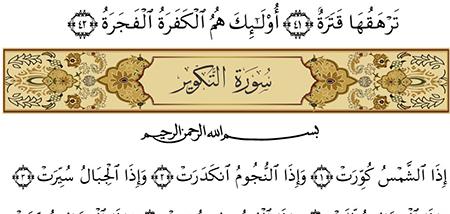 تَرْهَقُهَا قَتَرَةٌ ﴿٤١﴾ أُوْلَـٰٓئِكَ هُمُ ٱلْكَفَرَةُ ٱلْفَجَرَةُ ﴿٤٢﴾
سُورَةُ التَّكْوِير
بسم الله الرحمن الرحيم
إِذَا ٱلشَّمْسُ كُوِّرَتْ ﴿١﴾ وَإِذَا ٱلنُّجُومُ ٱنكَدَرَتْ ﴿٢﴾ وَإِذَا ٱلْجِبَالُ سُيِّرَتْ ﴿٣﴾